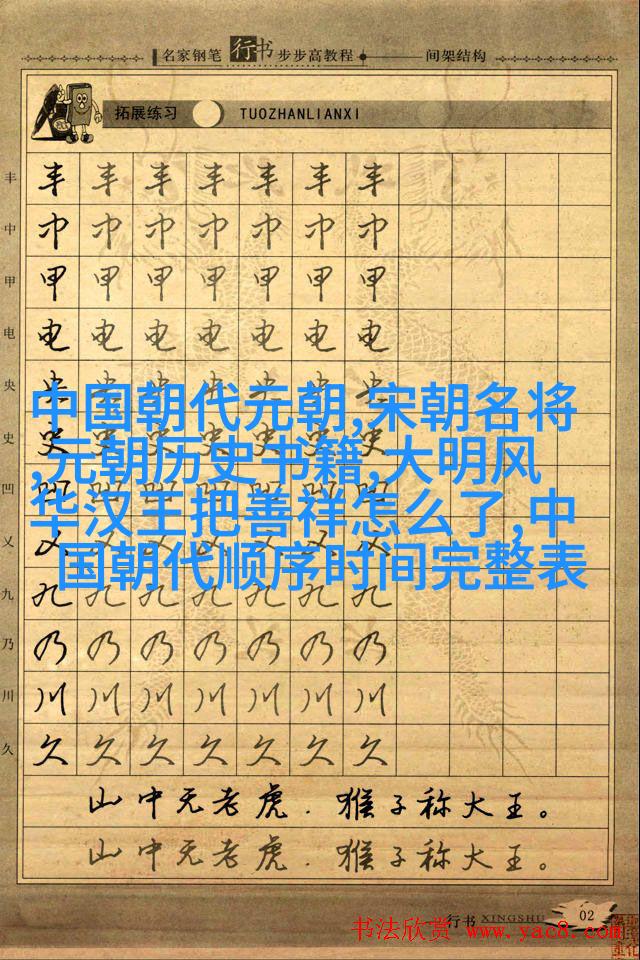 名家钢笔行书步步高教程 间架结构
拓展练习 TUOZHANLIANXI
丰 丰 丰 丰 丰 丰 丰 丰
中 中 中 中 中 中 中 中
甲 甲 甲 甲 甲 甲 甲 甲
电 电 电 电 电 电 电 电
央 央 央 央 央 央 央 央
中国朝代元朝,宋朝名将
史 史 史 史 史 史 史 史
,元朝历史书籍,大明风
凹 凹 凹 凹 凹 凹 凹 凹
华汉王把善祥怎么了,中
乂 乂 乂 乂 乂 乂 乂 乂
国朝代顺序时间完整表
九 九 九 九 九 九 九 九
乃 乃 乃 乃 乃 乃 乃 乃
川 川 川 川 川 川 川 川
久 久 久 久 久 久 久 久
山中无老虎.猴子称大王。
山中无老虎.猴子称大王。
行书 XINGSHU 02
书法欣赏 www.yac8.com